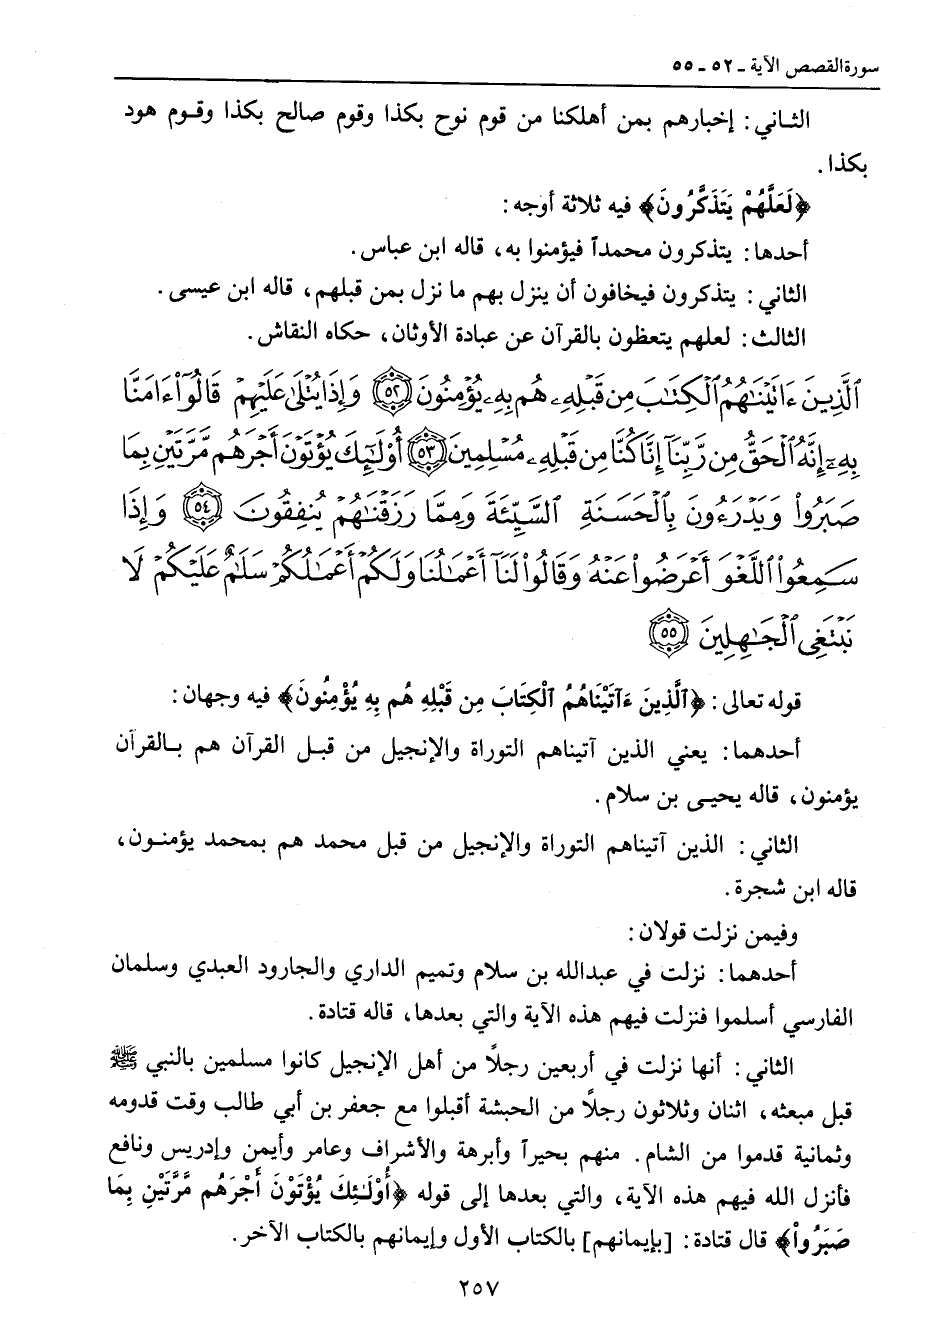 سورة القصص الآية ـ ٥٢ ـ ٥٥
الثاني: إخبارهم بمن أهلكنا من قوم نوح بكذا وقوم صالح بكذا وقوم هود
بكذا.
﴿لَعَلَّهُمْ يَتَذَكَّرُونَ﴾ فيه ثلاثة أوجه:
أحدها: يتذكرون محمداً فيؤمنوا به، قاله ابن عباس.
الثاني: يتذكرون فيخافون أن ينزل بهم ما نزل بمن قبلهم، قاله ابن عيسى.
الثالث: لعلهم يتعظون بالقرآن عن عبادة الأوثان، حكاه النقاش.
ٱلَّذِينَ ءَاتَيْنَٰهُمُ ٱلْكِتَٰبَ مِن قَبْلِهِۦ هُم بِهِۦ يُؤْمِنُونَ ٥٢ وَإِذَا يُتْلَىٰ عَلَيْهِمْ قَالُوٓا۟ ءَامَنَّا
بِهِۦٓ إِنَّهُ ٱلْحَقُّ مِن رَّبِّنَآ إِنَّا كُنَّا مِن قَبْلِهِۦ مُسْلِمِينَ ٥٣ أُو۟لَٰٓئِكَ يُؤْتَوْنَ أَجْرَهُم مَّرَّتَيْنِ بِمَا
صَبَرُوا۟ وَيَدْرَءُونَ بِٱلْحَسَنَةِ ٱلسَّيِّئَةَ وَمِمَّا رَزَقْنَٰهُمْ يُنفِقُونَ ٥٤ وَإِذَا
سَمِعُوا۟ ٱللَّغْوَ أَعْرَضُوا۟ عَنْهُ وَقَالُوا۟ لَنَآ أَعْمَٰلُنَا وَلَكُمْ أَعْمَٰلُكُمْ سَلَٰمٌ عَلَيْكُمْ لَا
نَبْتَغِى ٱلْجَٰهِلِينَ ٥٥
قوله تعالى: ﴿ٱلَّذِينَ ءَاتَيْنَاهُمُ ٱلْكِتَابَ مِن قَبْلِهِ هُم بِهِ يُؤْمِنُونَ﴾ فيه وجهان:
أحدهما: يعني الذين آتيناهم التوراة والإنجيل من قبل القرآن هم بالقرآن
يؤمنون، قاله يحيى بن سلام.
الثاني: الذين آتيناهم التوراة والإنجيل من قبل محمد هم بمحمد يؤمنون،
قاله ابن شجرة.
وفيمن نزلت قولان:
أحدهما: نزلت في عبدالله بن سلام وتميم الداري والجارود العبدي وسلمان
الفارسي أسلموا فنزلت فيهم هذه الآية والتي بعدها، قاله قتادة.
الثاني: أنها نزلت في أربعين رجلاً من أهل الإنجيل كانوا مسلمين بالنبي ﷺ
قبل مبعثه، اثنان وثلاثون رجلاً من الحبشة أقبلوا مع جعفر بن أبي طالب وقت قدومه
وثمانية قدموا من الشام. منهم بحيراً وأبرهة والأشراف وعامر وأيمن وإدريس ونافع
فأنزل الله فيهم هذه الآية، والتي بعدها إلى قوله ﴿أُوْلَٰئِكَ يُؤْتَوْنَ أَجْرَهُم مَّرَّتَيْنِ بِمَا
صَبَرُواْ﴾ قال قتادة: [بإيمانهم] بالكتاب الأول وإيمانهم بالكتاب الآخر.
٢٥٧